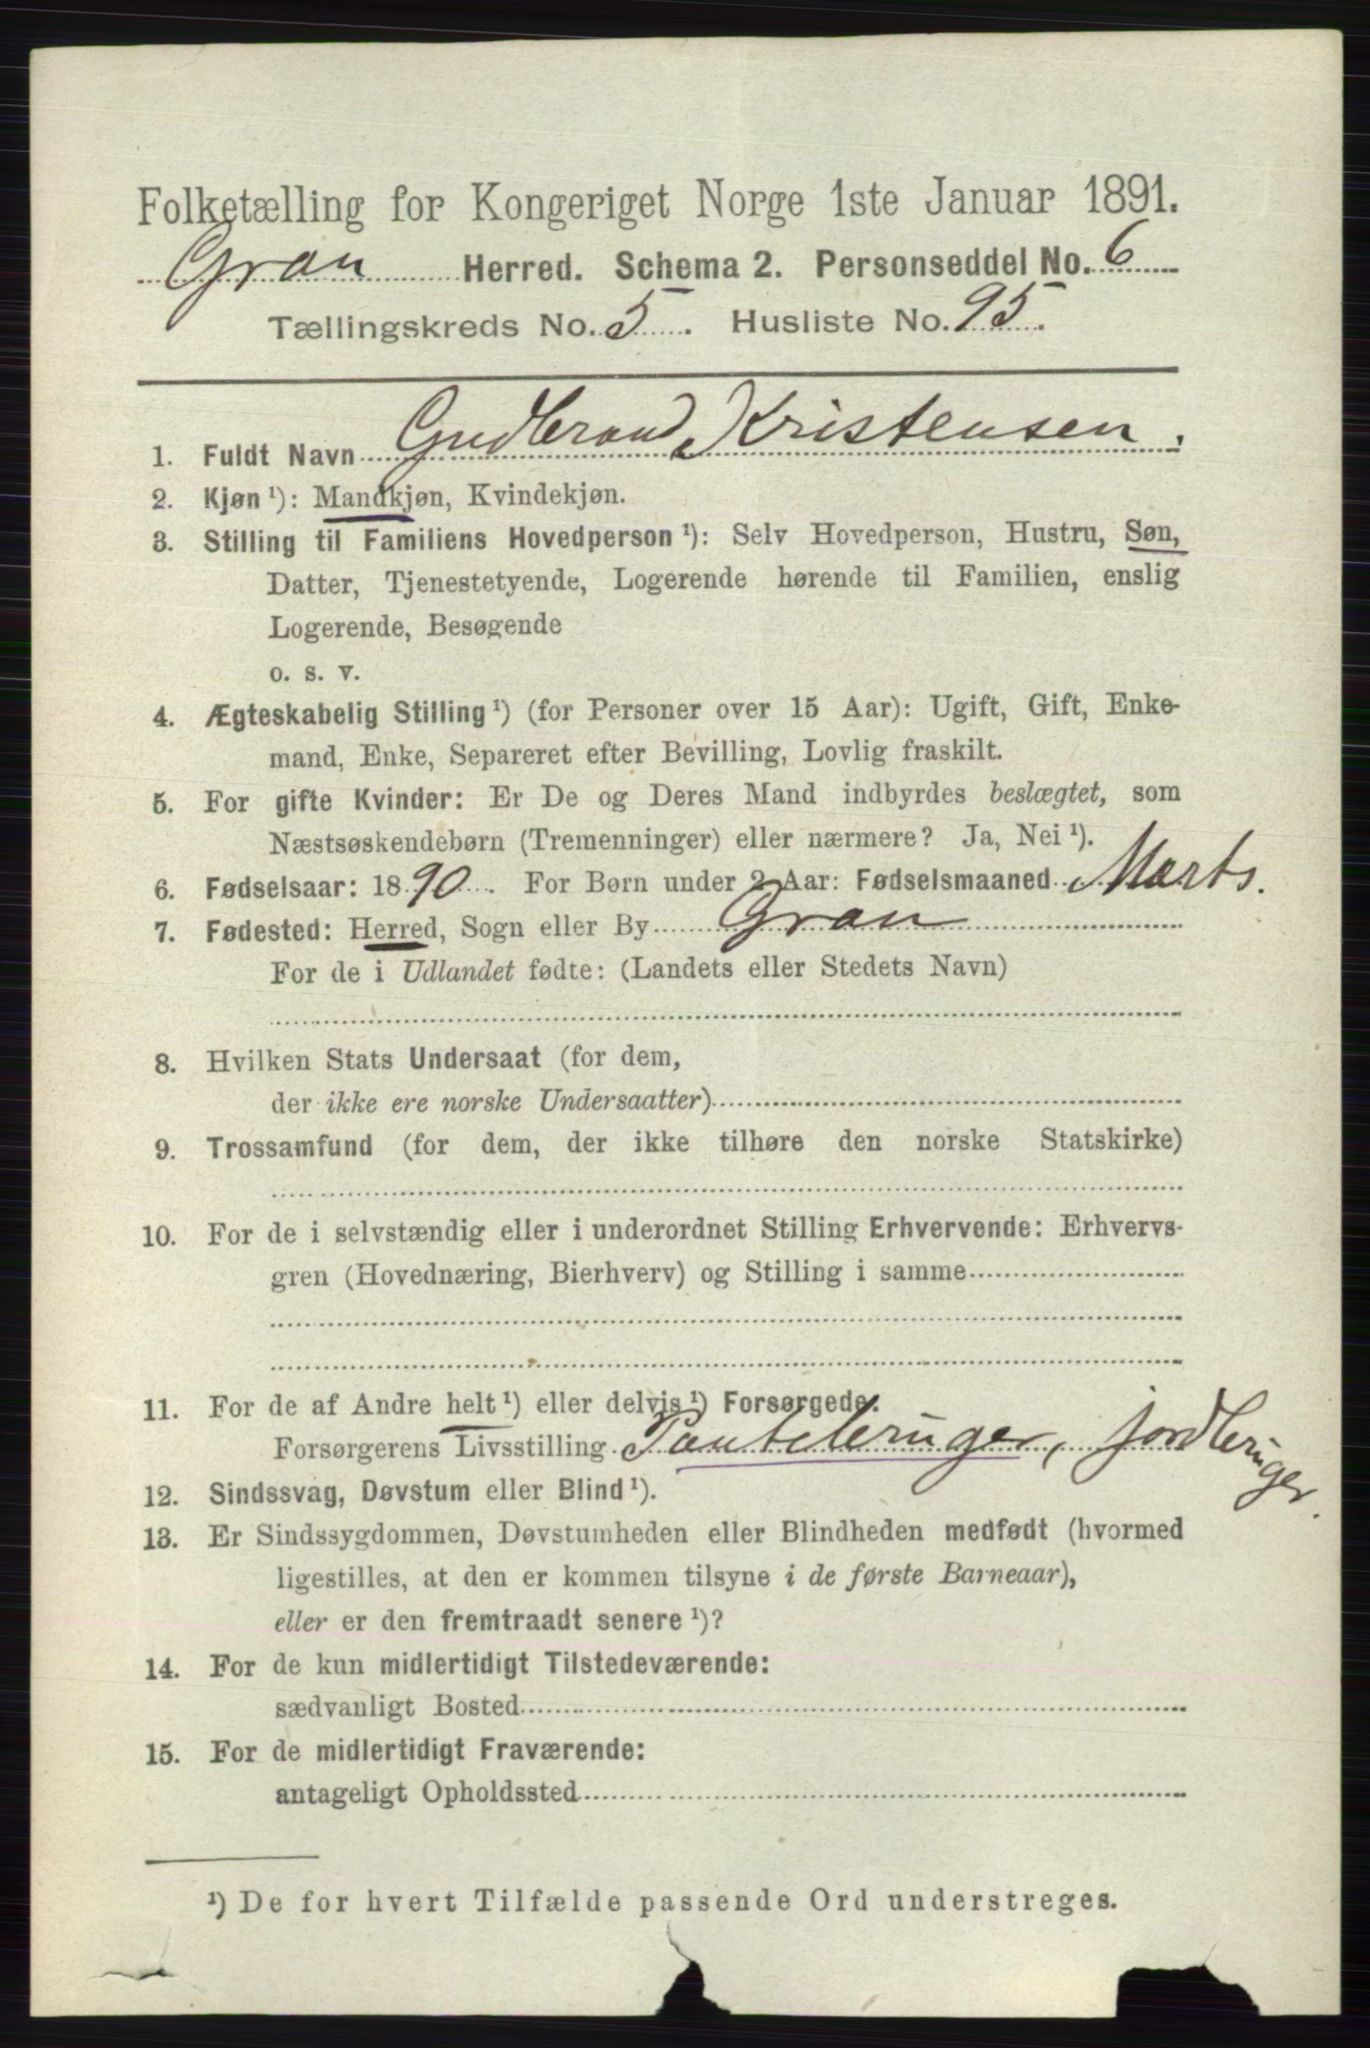 Folketælling for Kongeriget Norge 1ste Januar 1891.
Gran Herred. Schema 2. Personseddel No. 6
Tællingskreds No. 5. Husliste No. 95.
1. Fuldt Navn Gudbrand Kristensen.
2. Kjøn ¹): Mandkjøn, Kvindekjøn.
3. Stilling til Familiens Hovedperson ¹): Selv Hovedperson, Hustru, Søn,
Datter, Tjenestetyende, Logerende hørende til Familien, enslig
Logerende, Besøgende
o. s. v.
4. Ægteskabelig Stilling ¹) (for Personer over 15 Aar): Ugift, Gift, Enke-
mand, Enke, Separeret efter Bevilling, Lovlig fraskilt.
5. For gifte Kvinder: Er De og Deres Mand indbyrdes beslægtet, som
Næstsøskendebørn (Tremenninger) eller nærmere? Ja, Nei ¹).
6. Fødselsaar: 1890. For Børn under 2 Aar: Fødselsmaaned Marts.
7. Fødested: Herred, Sogn eller By Gran
For de i Udlandet fødte: (Landets eller Stedets Navn)
8. Hvilken Stats Undersaat (for dem,
der ikke ere norske Undersaatter)
9. Trossamfund (for dem, der ikke tilhøre den norske Statskirke)
10. For de i selvstændig eller i underordnet Stilling Erhvervende: Erhvervs-
gren (Hovednæring, Bierhverv) og Stilling i samme
11. For de af Andre helt ¹) eller delvis ¹) Forsørgede.
Forsørgerens Livsstilling Pantebruger, jordbruger.
12. Sindssvag, Døvstum eller Blind ¹).
13. Er Sindssygdommen, Døvstumheden eller Blindheden medfødt (hvormed
ligestilles, at den er kommen tilsyne i de første Barneaar),
eller er den fremtraadt senere ¹)?
14. For de kun midlertidigt Tilstedeværende:
sædvanligt Bosted
15. For de midlertidigt Fraværende:
antageligt Opholdssted
¹) De for hvert Tilfælde passende Ord understreges.